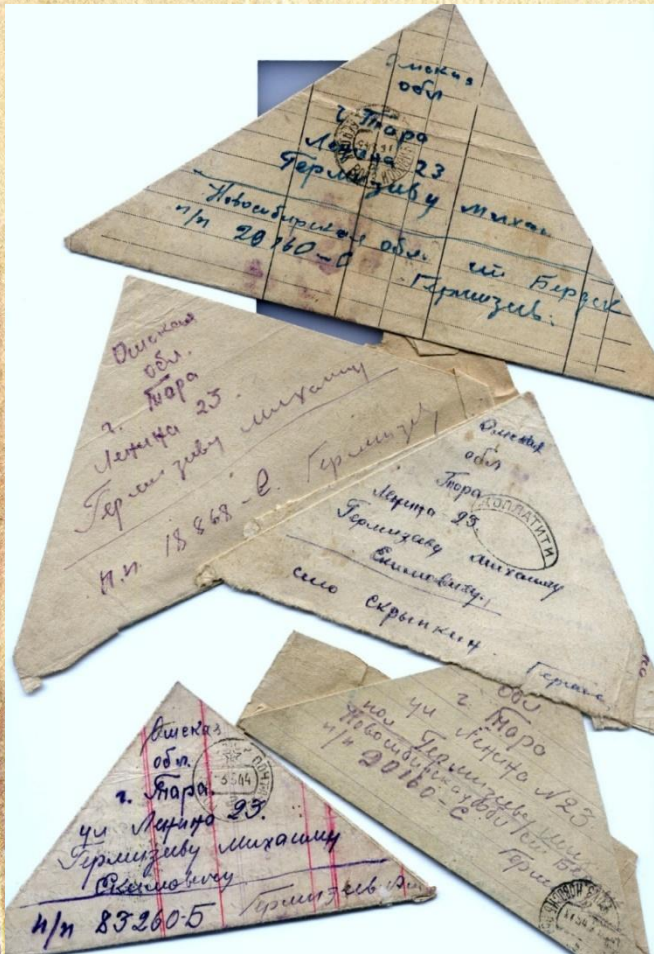 Омская
обл
г Тара
Ленина 23
Гермизеву Михаи
Новосибирская обл. ст Бердск
п/п 20160-С Гермизев.
Омская
обл.
г. Тара
Ленина 23
Гермизеву Михаилу
п.п. 18868-С. Гермизев
Омская
обл
Тара
Ленина 23.
ДОПЛАТИТИ
Гермизеву Михаилу
Екимовичу.
село Скрыпкин.
обл
г. Тара
ул Ленина N23
Гермизеву
Новосибирская обл ст
п/п 20160-С
Омская
обл.
г. Тара.
ул Ленина 23.
Гермизеву Михаилу
Екимовичу
п/п 83260-Б Гермизев